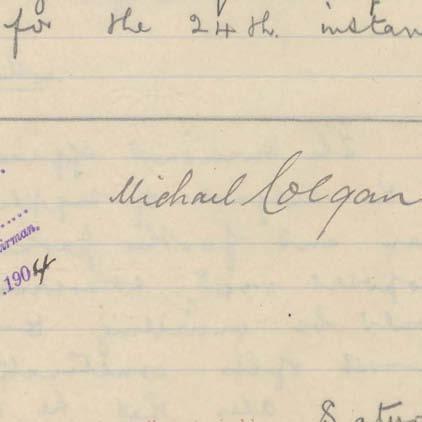 for the 24th. instan
Michael Colgan
irman.
.1904